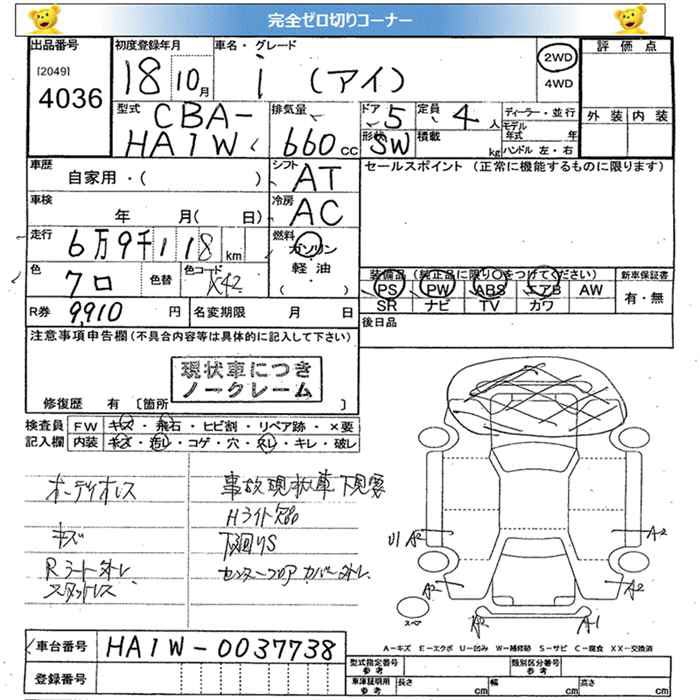 完全ゼロ切りコーナー
出品番号
[2049]
4036
初度登録年月
18 10月
車名・グレード
i (アイ)
2WD
4WD
評価点
外装 内装
型式
CBA-
HA1W
排気量
660 cc
ドア 5
形状 SW
定員 4 人
積載 kg
ディーラー・並行
モデル年式 年
ハンドル 左・右
車歴
自家用・( )
シフト
AT
セールスポイント (正常に機能するものに限ります)
車検
年 月( 日)
冷房
AC
走行
6万9千118 km
燃料
ガソリン
軽油
( )
色
クロ
色替
色コード
X42
装備品 (純正品に限り○をつけてください)
新車保証書
PS PW ABS エアB AW
SR ナビ TV カワ
有・無
R券
9,910 円
名変期限 月 日
後日品
注意事項申告欄(不具合内容等は具体的に記入して下さい)
現状車につき
ノークレーム
修復歴 有 [箇所 ]
検査員
記入欄
FW キズ・飛石・ヒビ割・リペア跡・×要
内装 キズ・汚レ・コゲ・穴・スレ・キレ・破レ
オーディオレス
キズ
Rシートハズレ
スタットレス
事故現状車下見要
Hライト欠品
下廻りS
センターフロアカバーハズレ
A2
A2
A2
A2
A2
A1
スペ
車台番号
HA1W-0037738
登録番号
A-キズ E-エクボ U-凹み W-補修跡 S-サビ C-腐食 XX-交換済
型式指定番号
参考
類別区分番号
参考
車庫証明用
参考
長さ cm
幅 cm
高さ cm